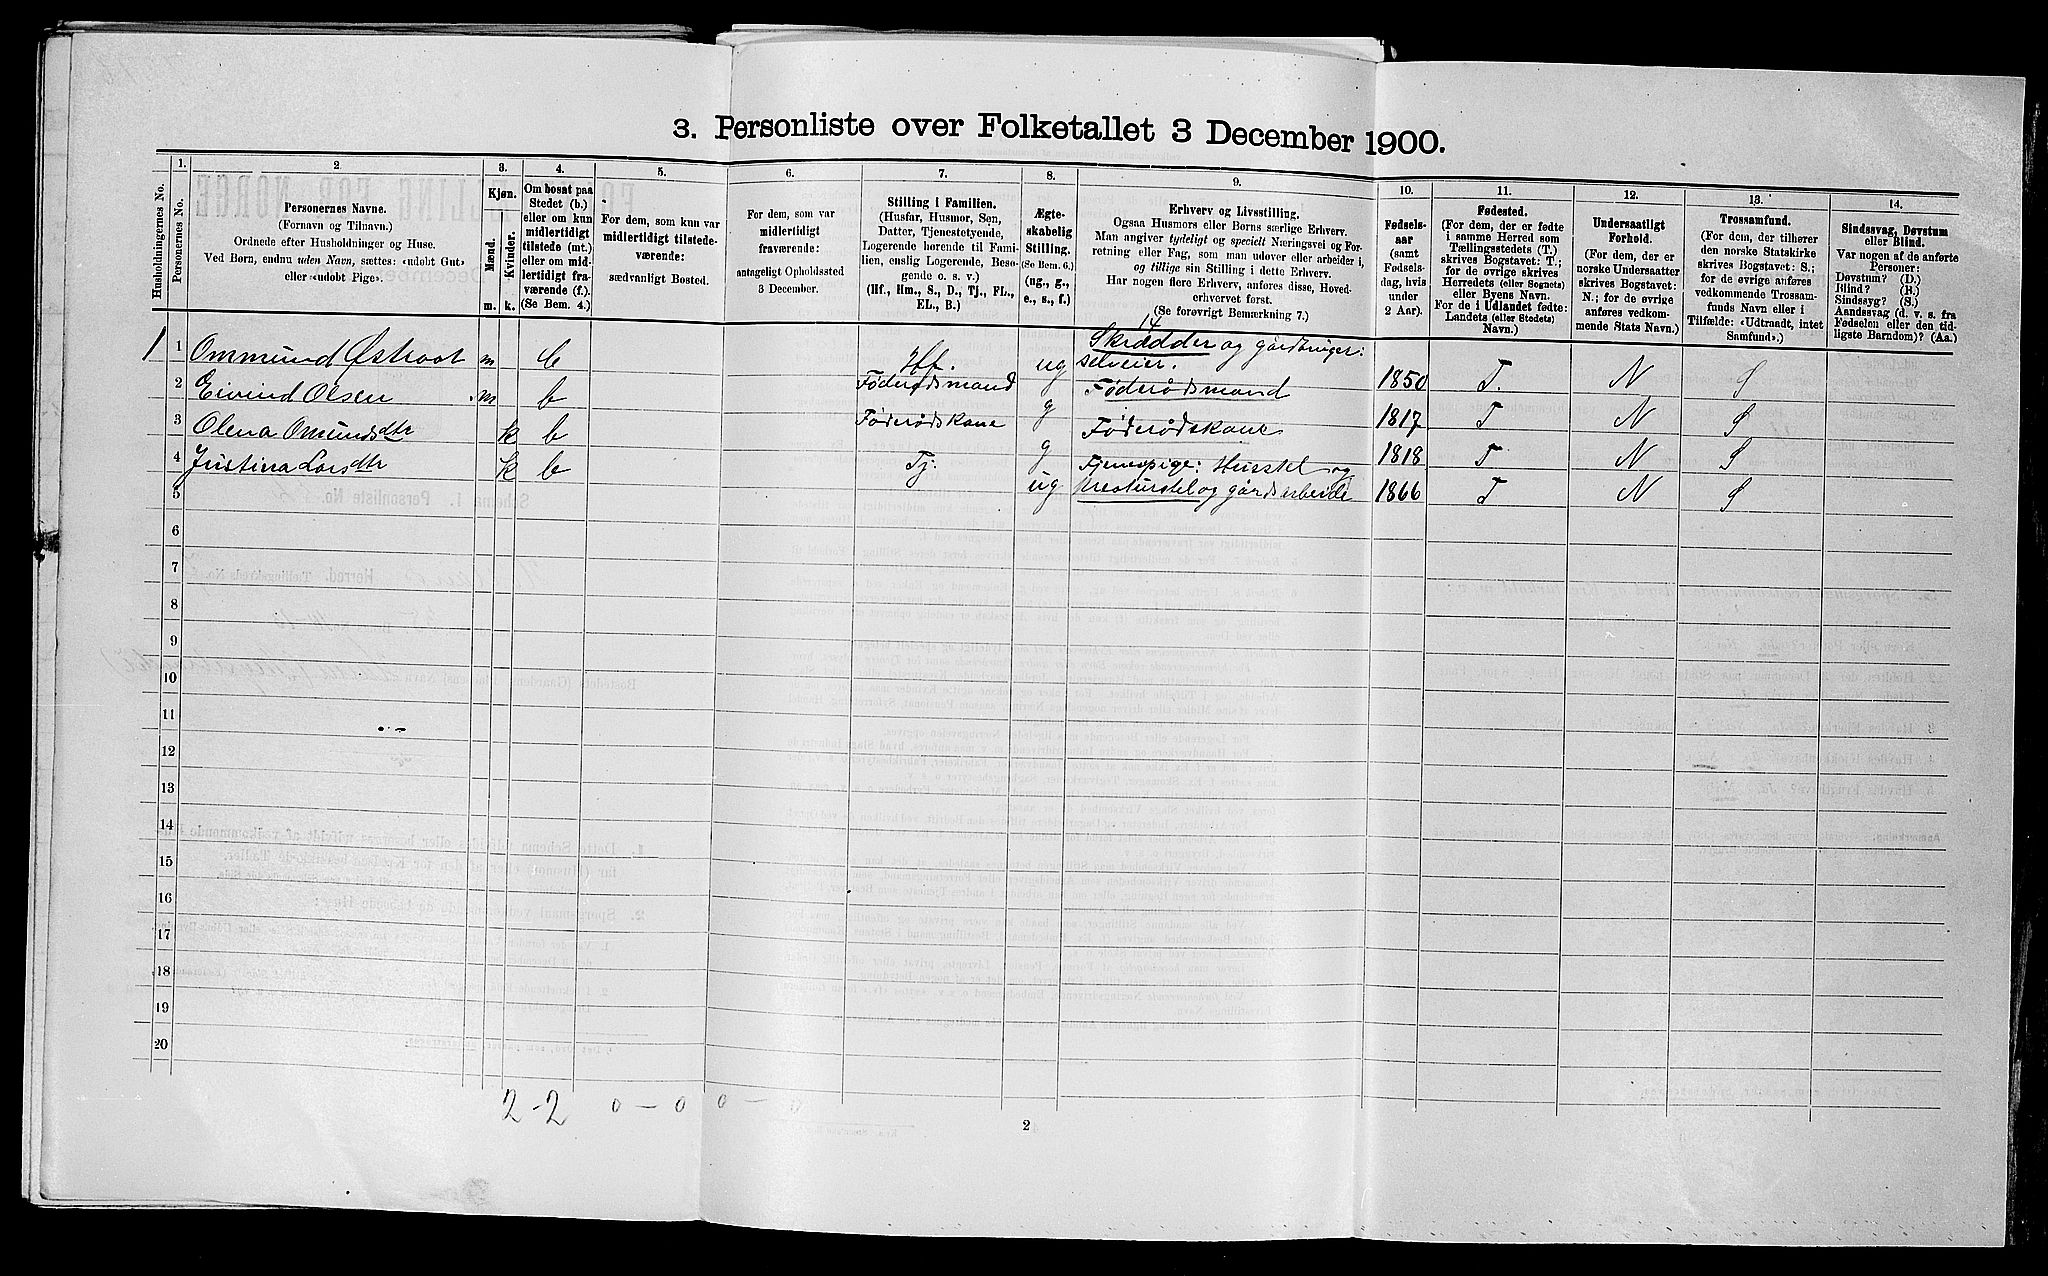 3. Personliste over Folketallet 3 December 1900.
Husholdningernes No.
1.
Personernes No.
2.
Personernes Navne.
(Fornavn og Tilnavn.)
Ordnede efter Husholdninger og Huse.
Ved Børn, endnu uden Navn, sættes: «udøbt Gut»
eller «udøbt Pige».
3.
Kjøn.
Mænd.
Kvinder.
m.
k.
4.
Om bosat paa
Stedet (b.)
eller om kun
midlertidigt
tilstede (mt.)
eller om mid-
lertidigt fra-
værende (f.)
(Se Bem. 4.)
5.
For dem, som kun var
midlertidigt tilstede-
værende:
sædvanligt Bosted.
6.
For dem, som var
midlertidigt
fraværende:
antageligt Opholdssted
3 December.
7.
Stilling i Familien.
(Husfar, Husmor, Søn,
Datter, Tjenestetyende,
Logerende hørende til Fami-
lien, enslig Logerende, Besø-
gende o. s. v.)
(Hf., Hm., S., D., Tj., FL.,
EL., B.)
8.
Ægte-
skabelig
Stilling.
(Se Bem. 6.)
(ug., g.,
e., s., f.)
9.
Erhverv og Livsstilling.
Ogsaa Husmors eller Børns særlige Erhverv.
Man angiver tydeligt og specielt Næringsvei og For-
retning eller Fag, som man udover eller arbeider i,
og tillige sin Stilling i dette Erhverv.
Har nogen flere Erhverv, anføres disse, Hoved-
erhvervet først.
(Se forøvrigt Bemærkning 7.)
10.
Fødsels-
aar
(samt
Fødsels-
dag, hvis
under
2 Aar).
11.
Fødested.
(For dem, der er fødte
i samme Herred som
Tællingsstedets (T.)
skrives Bogstavet: T.;
for de øvrige skrives
Herredets (eller Sognets)
eller Byens Navn.
For de i Udlandet fødte:
Landets (eller Stedets)
Navn.)
12.
Undersaatligt
Forhold.
(For dem, der er
norske Undersaatter
skrives Bogstavet:
N.; for de øvrige
anføres vedkom-
mende Stats Navn.)
13.
Trossamfund.
(For dem, der tilhører
den norske Statskirke
skrives Bogstavet: S.;
for de øvrige anføres
vedkommende Trossam-
funds Navn eller i
Tilfælde: «Udtraadt, intet
Samfund».)
14.
Sindssvag, Døvstum
eller Blind.
Var nogen af de anførte
Personer:
Døvstum? (D.)
Blind? (B.)
Sindssyg? (S.)
Aandssvag (d. v. s. fra
Fødselen eller den tid-
ligste Barndom)? (Aa.)
14
1 1 Ommund Østraat m b Hf. ug Skrædder og gårdbruger: selveier. 1850 T. N S
2 Eivind Olsen m b Føderådsmand g Føderådsmand 1817 T N S
3 Olena Omundsdtr k b Føderådskone g Føderådskone 1818 T N S
4 Justina Larsdtr k b Tj. ug Tjenespige: Husstel og Kreaturstel og gårdsarbeide 1866 T N S
5
6
7
8
9
10
11
12
13
14
15
16
17
18
19
20
2-2 0-0 0-0
2